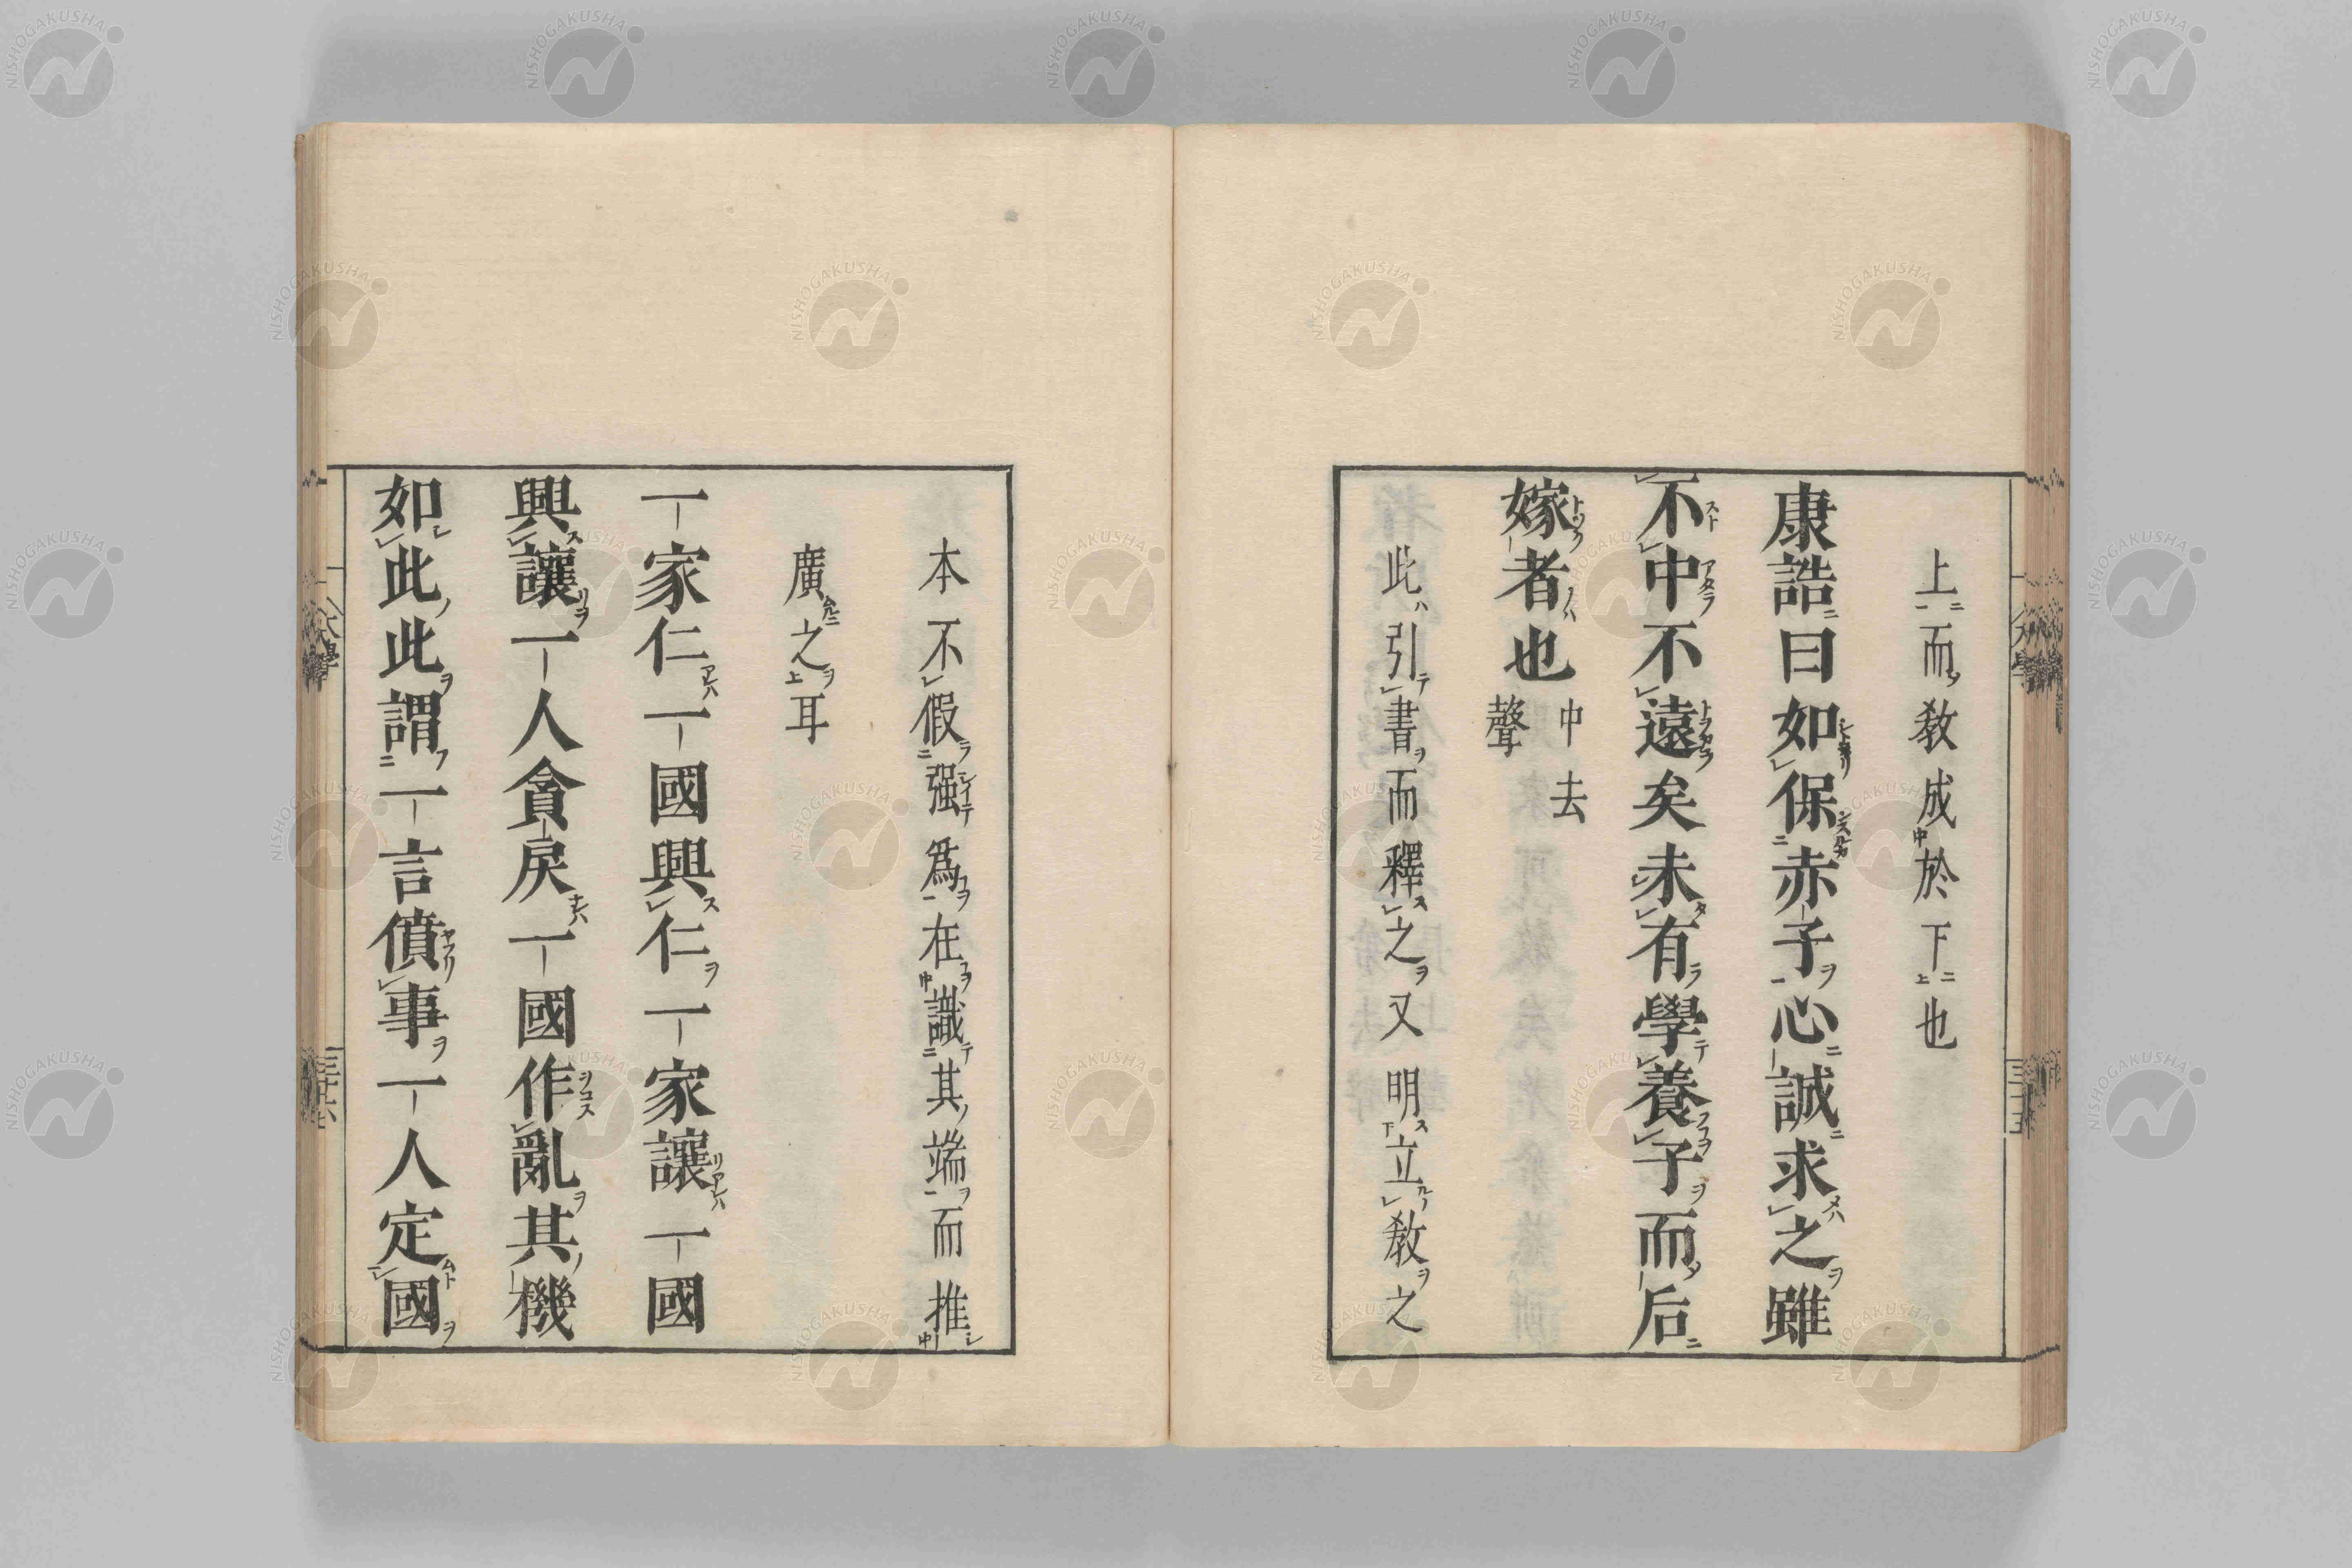 上而教成於下也
康誥曰如保赤子心誠求之雖
不中不遠矣未有學養子而后
嫁者也中去
聲
此引書而釋之又明立教之
本不假强爲在識其端而推
廣之耳
一家仁一國興仁一家讓一國
興讓一人貪戾一國作亂其機
如此此謂一言僨事一人定國